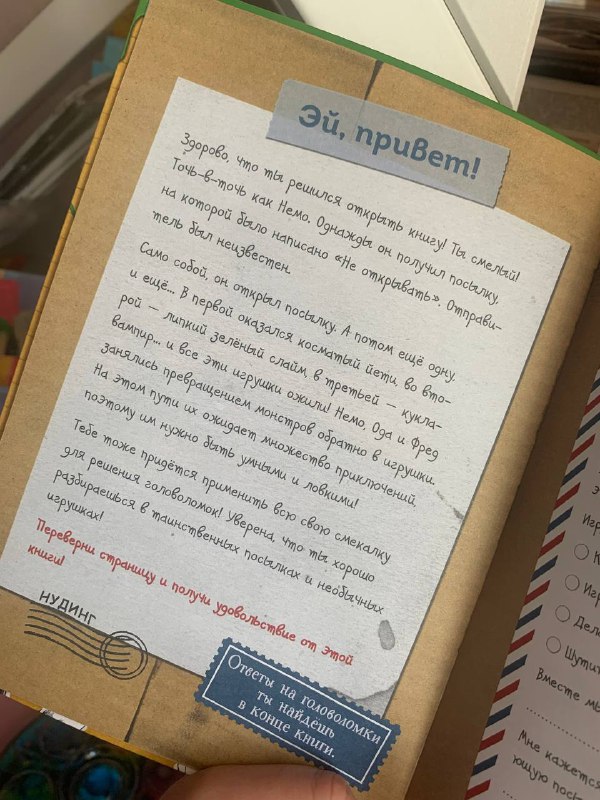 Эй, привет!
Здорово, что ты решился открыть книгу! Ты смелый!
Точь-в-точь как Немо. Однажды он получил посылку,
на которой было написано «Не открывать». Отправи-
тель был неизвестен.
Само собой, он открыл посылку. А потом ещё одну.
и ещё... В первой оказался косматый йети, во вто-
рой — липкий зелёный слайм, в третьей — кукла-
вампир... и все эти игрушки ожили! Немо, Ода и Фред
занялись превращением монстров обратно в игрушки.
На этом пути их ожидает множество приключений,
поэтому им нужно быть умными и ловкими!
Тебе тоже придётся применить всю свою смекалку
для решения головоломок! Уверена, что ты хорошо
разбираешься в таинственных посылках и необычных
игрушках!
Переверни страницу и получи удовольствие от этой
книги!
НУДИНГ
Ответы на головоломки
ты найдёшь
в конце книги.
Игр
К
Игр
Дел
Шутит
Вместе мы
Мне кажется
ющую пос